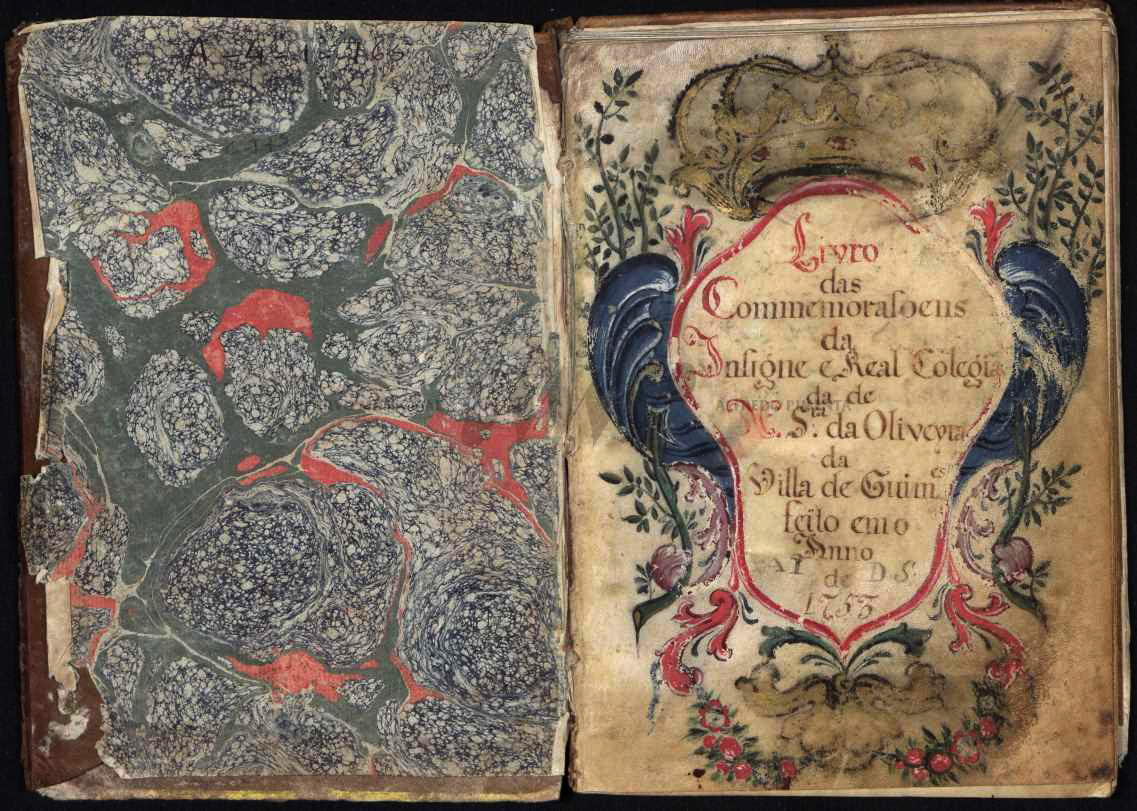 A-4-1-166
Livro
das
Commemorasoens
da
Insigne e Real Colegia
da de
N. Sra. da Oliveyra
da
Villa de Guim.es
feito em o
Anno
de D. S.
1753